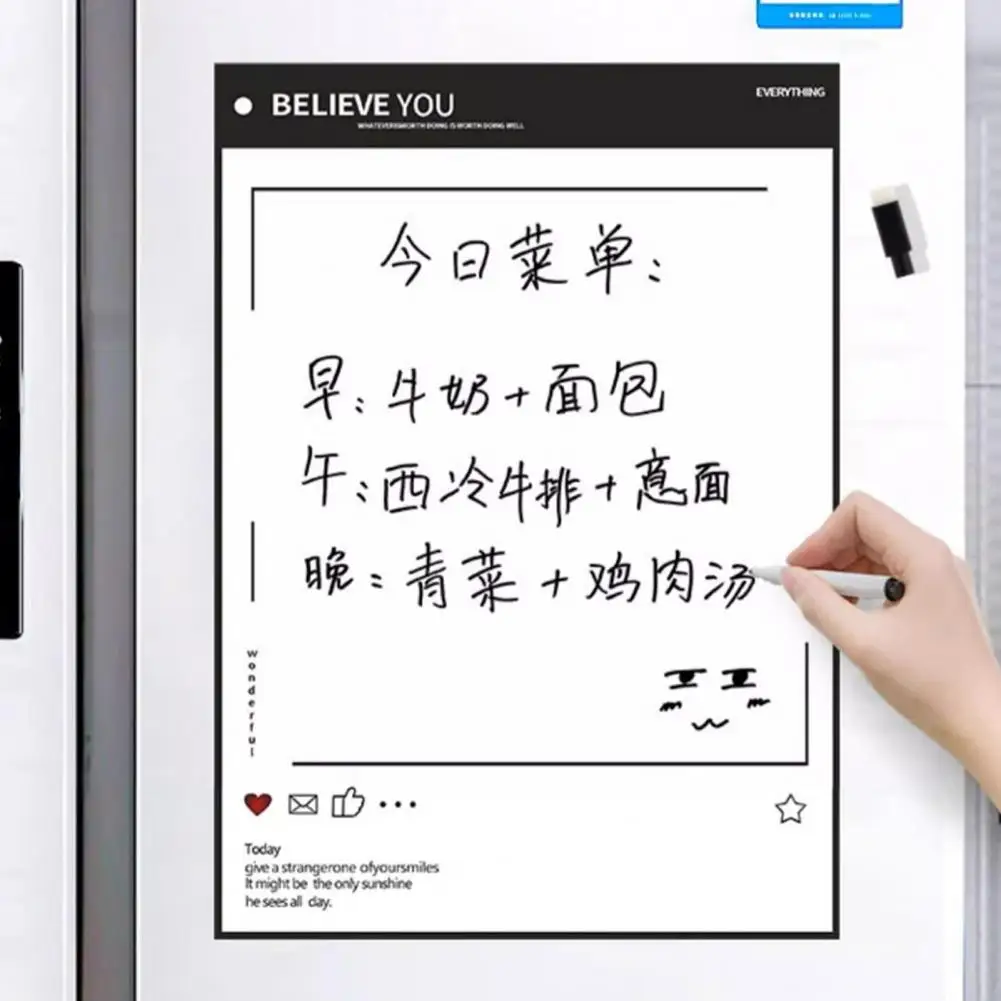 BELIEVE YOU
EVERYTHING
WHATEVERISWORTH DOING IS WORTH DOING WELL
今日菜单:
早:牛奶+面包
午:西冷牛排+意面
晚:青菜+鸡肉汤
wonderful
Today
give a strangerone ofyoursmiles
It might be the only sunshine
he sees all day.